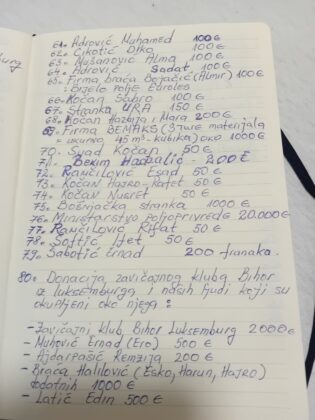 burg
61. Adrović Muhamed 100€
62. Cikotić Diko 100€
63. Mušanović Alma 100€
64. Adrović Sadat, 100€
65. Firma braća Bojačić (Almir) 100€
Bijelo polje Euroles
66. Kočan Sabro 100€
67. Stranka URA 150€
68. Kočan Hazbija i Mara 200€
69. Firma BEMAKS (3 ture materijala
ukupno 45 m³-kubika) oko 1000€
70. Sead Kočan 50€
71. Bekim Hadbalić - 200€
72. Rančilović Esad 50€
73. Kočan Hajro-Rafet 50€
74. Kočan Nusret 50€
75. Bošnjačka stranka 1000€
76. Ministarstvo poljoprivrede 20.000€
77. Rančilović Rifat 50€
78. Softić Izet 50€
79. Šabotić Ernad 200 franaka.
80. Donacija zavičajnog kluba Bihor
iz luksemburga i naših ljudi koji su
okupljeni oko njega:
- Zavičajni klub, Bihor Luksemburg 2000€
- Muhović Ernad (Ero) 500€
- Ajdarpašić Remzija 200€
- Braća Halilović (Esko, Harun, Hajro)
dodatnih 1000€
- Latić Edin 500€